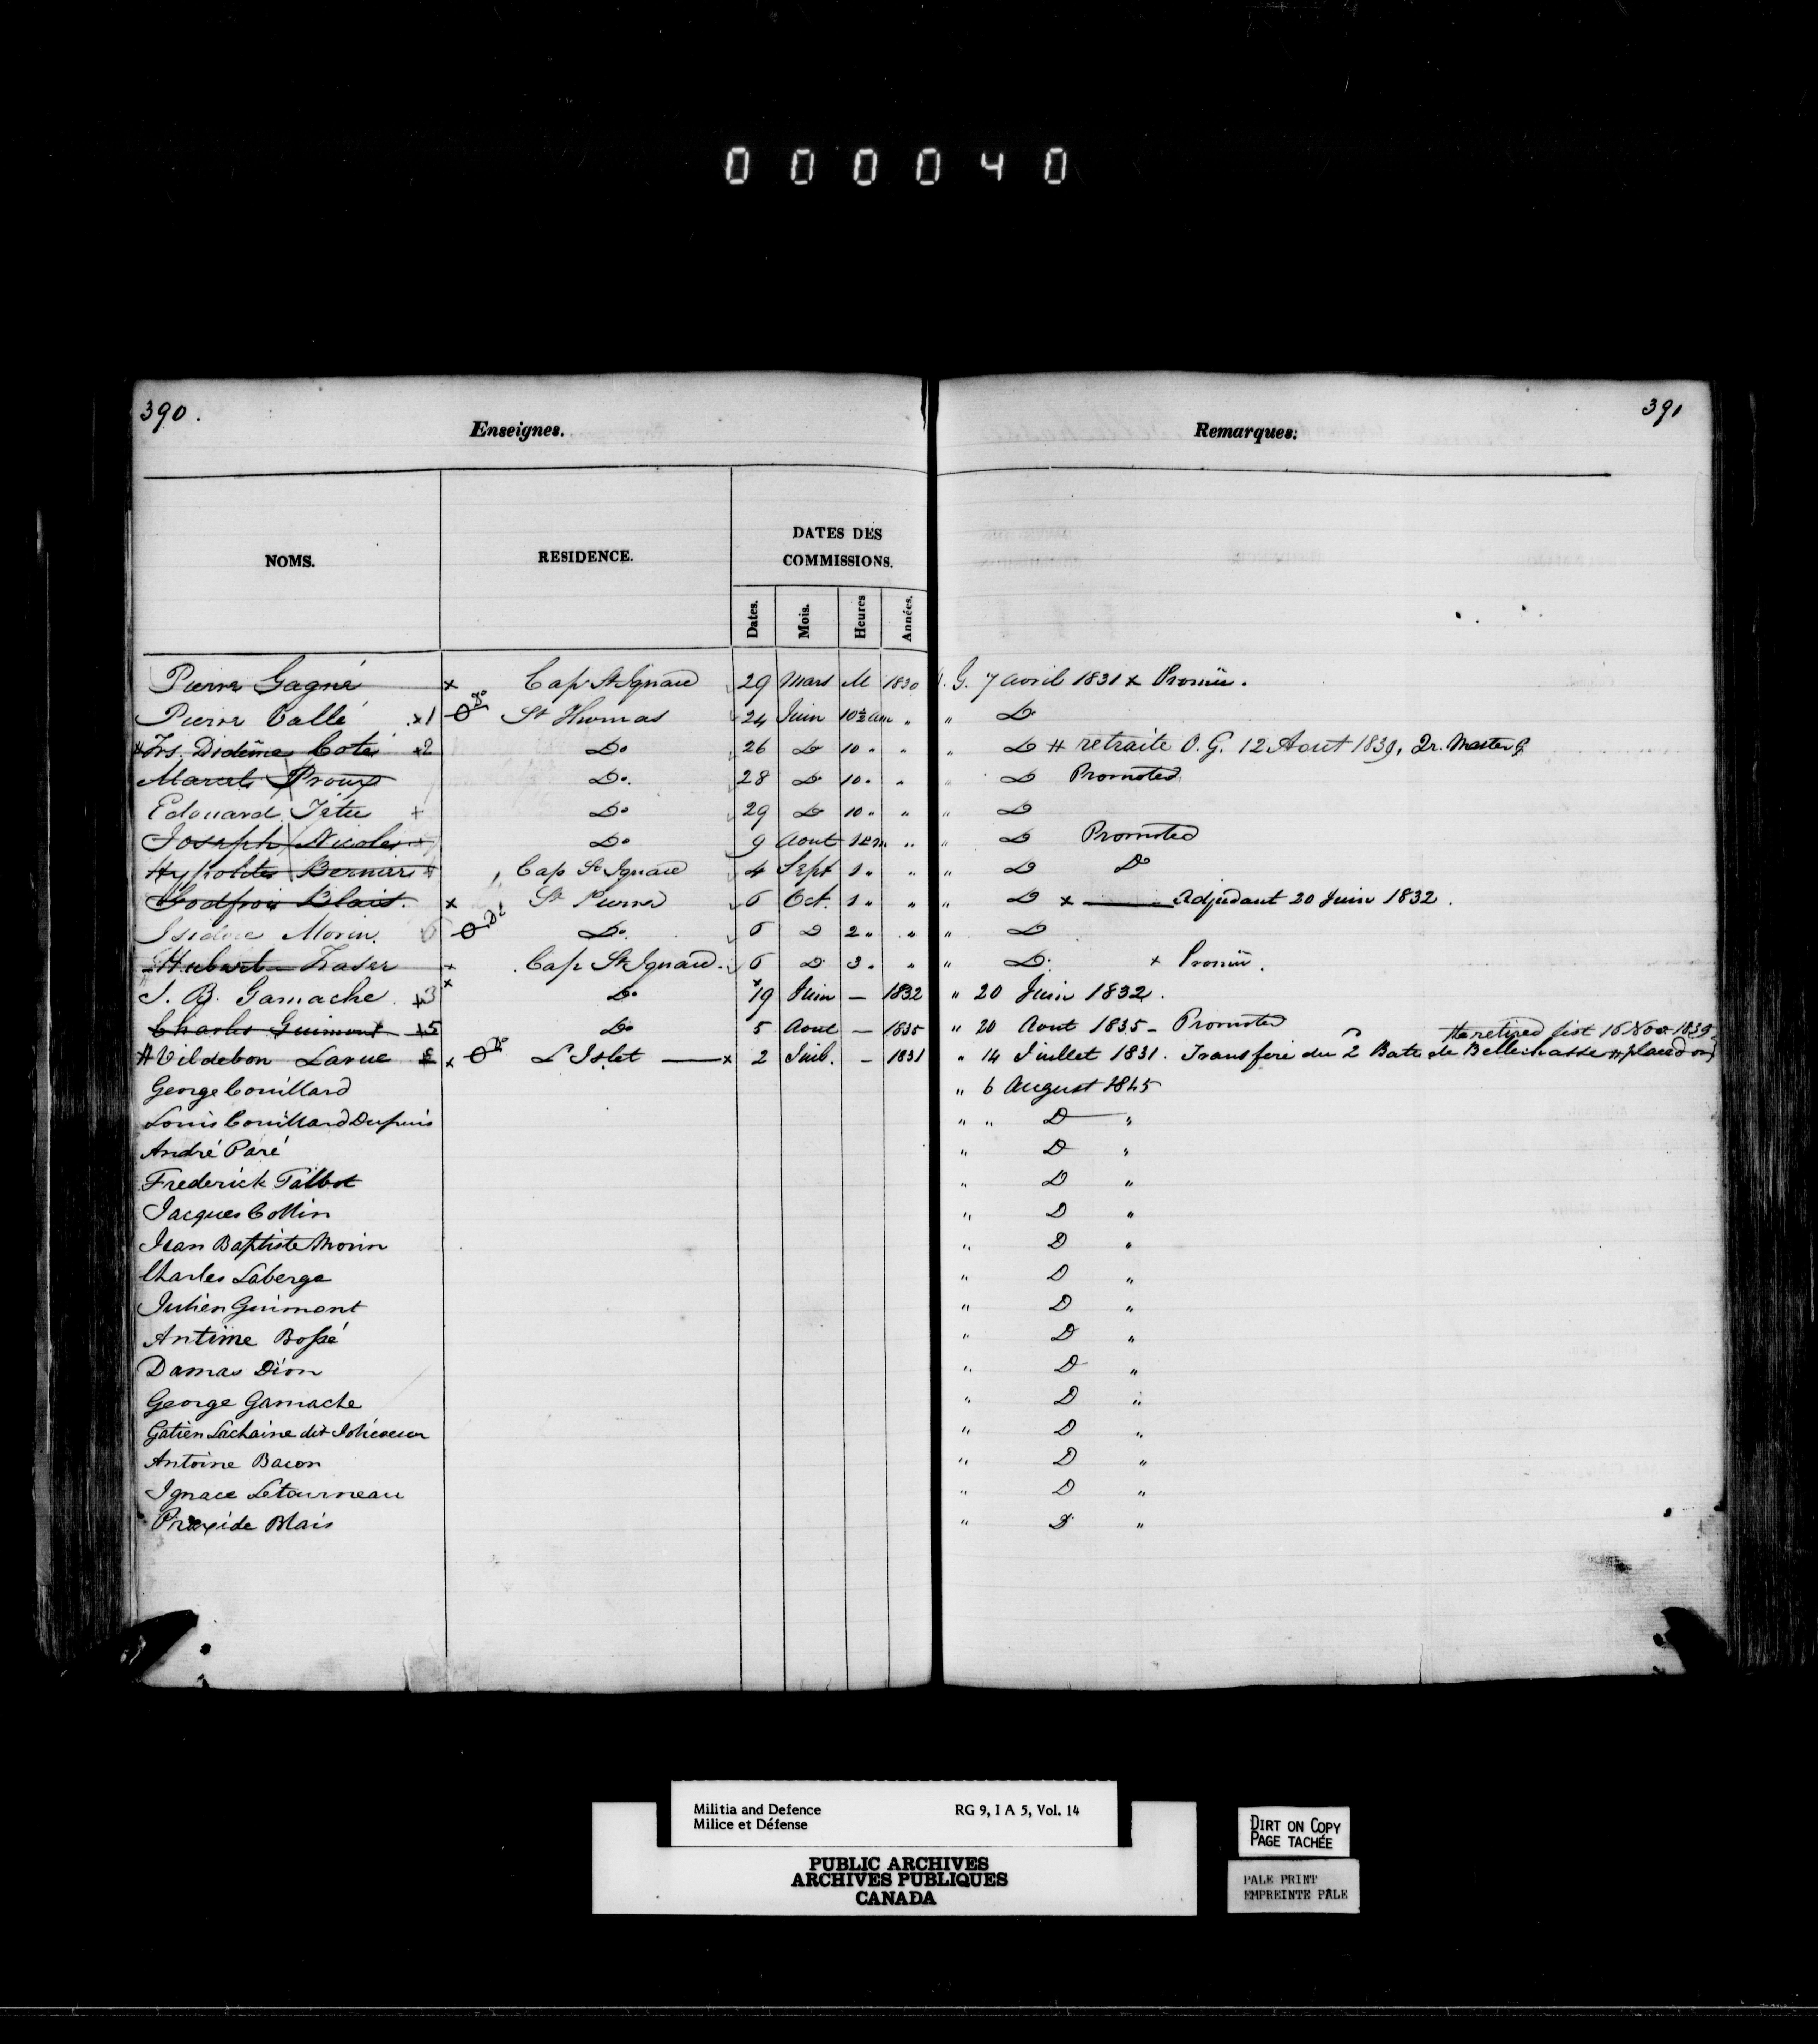 000040
390.
391
Enseignes.
Remarques:
NOMS.
RESIDENCE.
DATES DES
COMMISSIONS.
Dates.
Mois.
Heures
Années.
Pierre Gagné x Cap St Ignace 29 Mars M 1830 G. 7 avril 1831 x Promu.
Pierre Vallé x1 St Thomas 24 Juin 10½ am " " Do
# Frs. Didime Coté x2 Do 26 Do 10 " " " Do # retraite O.G. 12 Aout 1839, Qr. Master
Marcel Proux Do. 28 Do 10 " " " Do Promoted
Edouard Têtu x Do 29 Do 10 " " " Do
Joseph Nicole Do 9 Aout " " Do Promoted
Hypolite Bernier Cap St Ignace 4 Sept 1 " " " Do Do
Godfroi Blais. x St Pierre 6 Oct. 1 " " " Do x Adjudant 20 Juin 1832.
Isidore Morin. Do. 6 Do 2 " " " Do
Hubert Fraser x Cap St Ignace. 6 Do 3 " " " Do. x Promu.
J. B. Gamache x3 x Do 19 Juin — 1832 " 20 Juin 1832.
Charles Guimont x5 Do 5 Aout — 1835 " 20 Aout 1835 - Promoted
the retired list 16 Nov 1839
# Vildebon Larue x Do L'Islet x 2 Juil. - 1831 " 14 Juillet 1831. Transferé du 2 Batn de Bellechasse # placed on
George Couillard " 6 August 1845
Louis Couillard Dupuis " " D "
André Paré " D "
Frederick Talbot " D "
Jacques Collin " D "
Jean Baptiste Morin " D "
Charles Laberge " D "
Julien Guimont " D "
Antime Bossé " D "
Damas Dion " D "
George Gamache " D "
Gatien Lachaine dit Jolicoeur " D "
Antoine Bacon " D "
Ignace Letourneau " D "
Praxide Blais " D "
Militia and Defence RG 9, I A 5, Vol. 14
Milice et Défense
PUBLIC ARCHIVES
ARCHIVES PUBLIQUES
CANADA
DIRT ON COPY
PAGE TACHÉE
PALE PRINT
EMPREINTE PÂLE